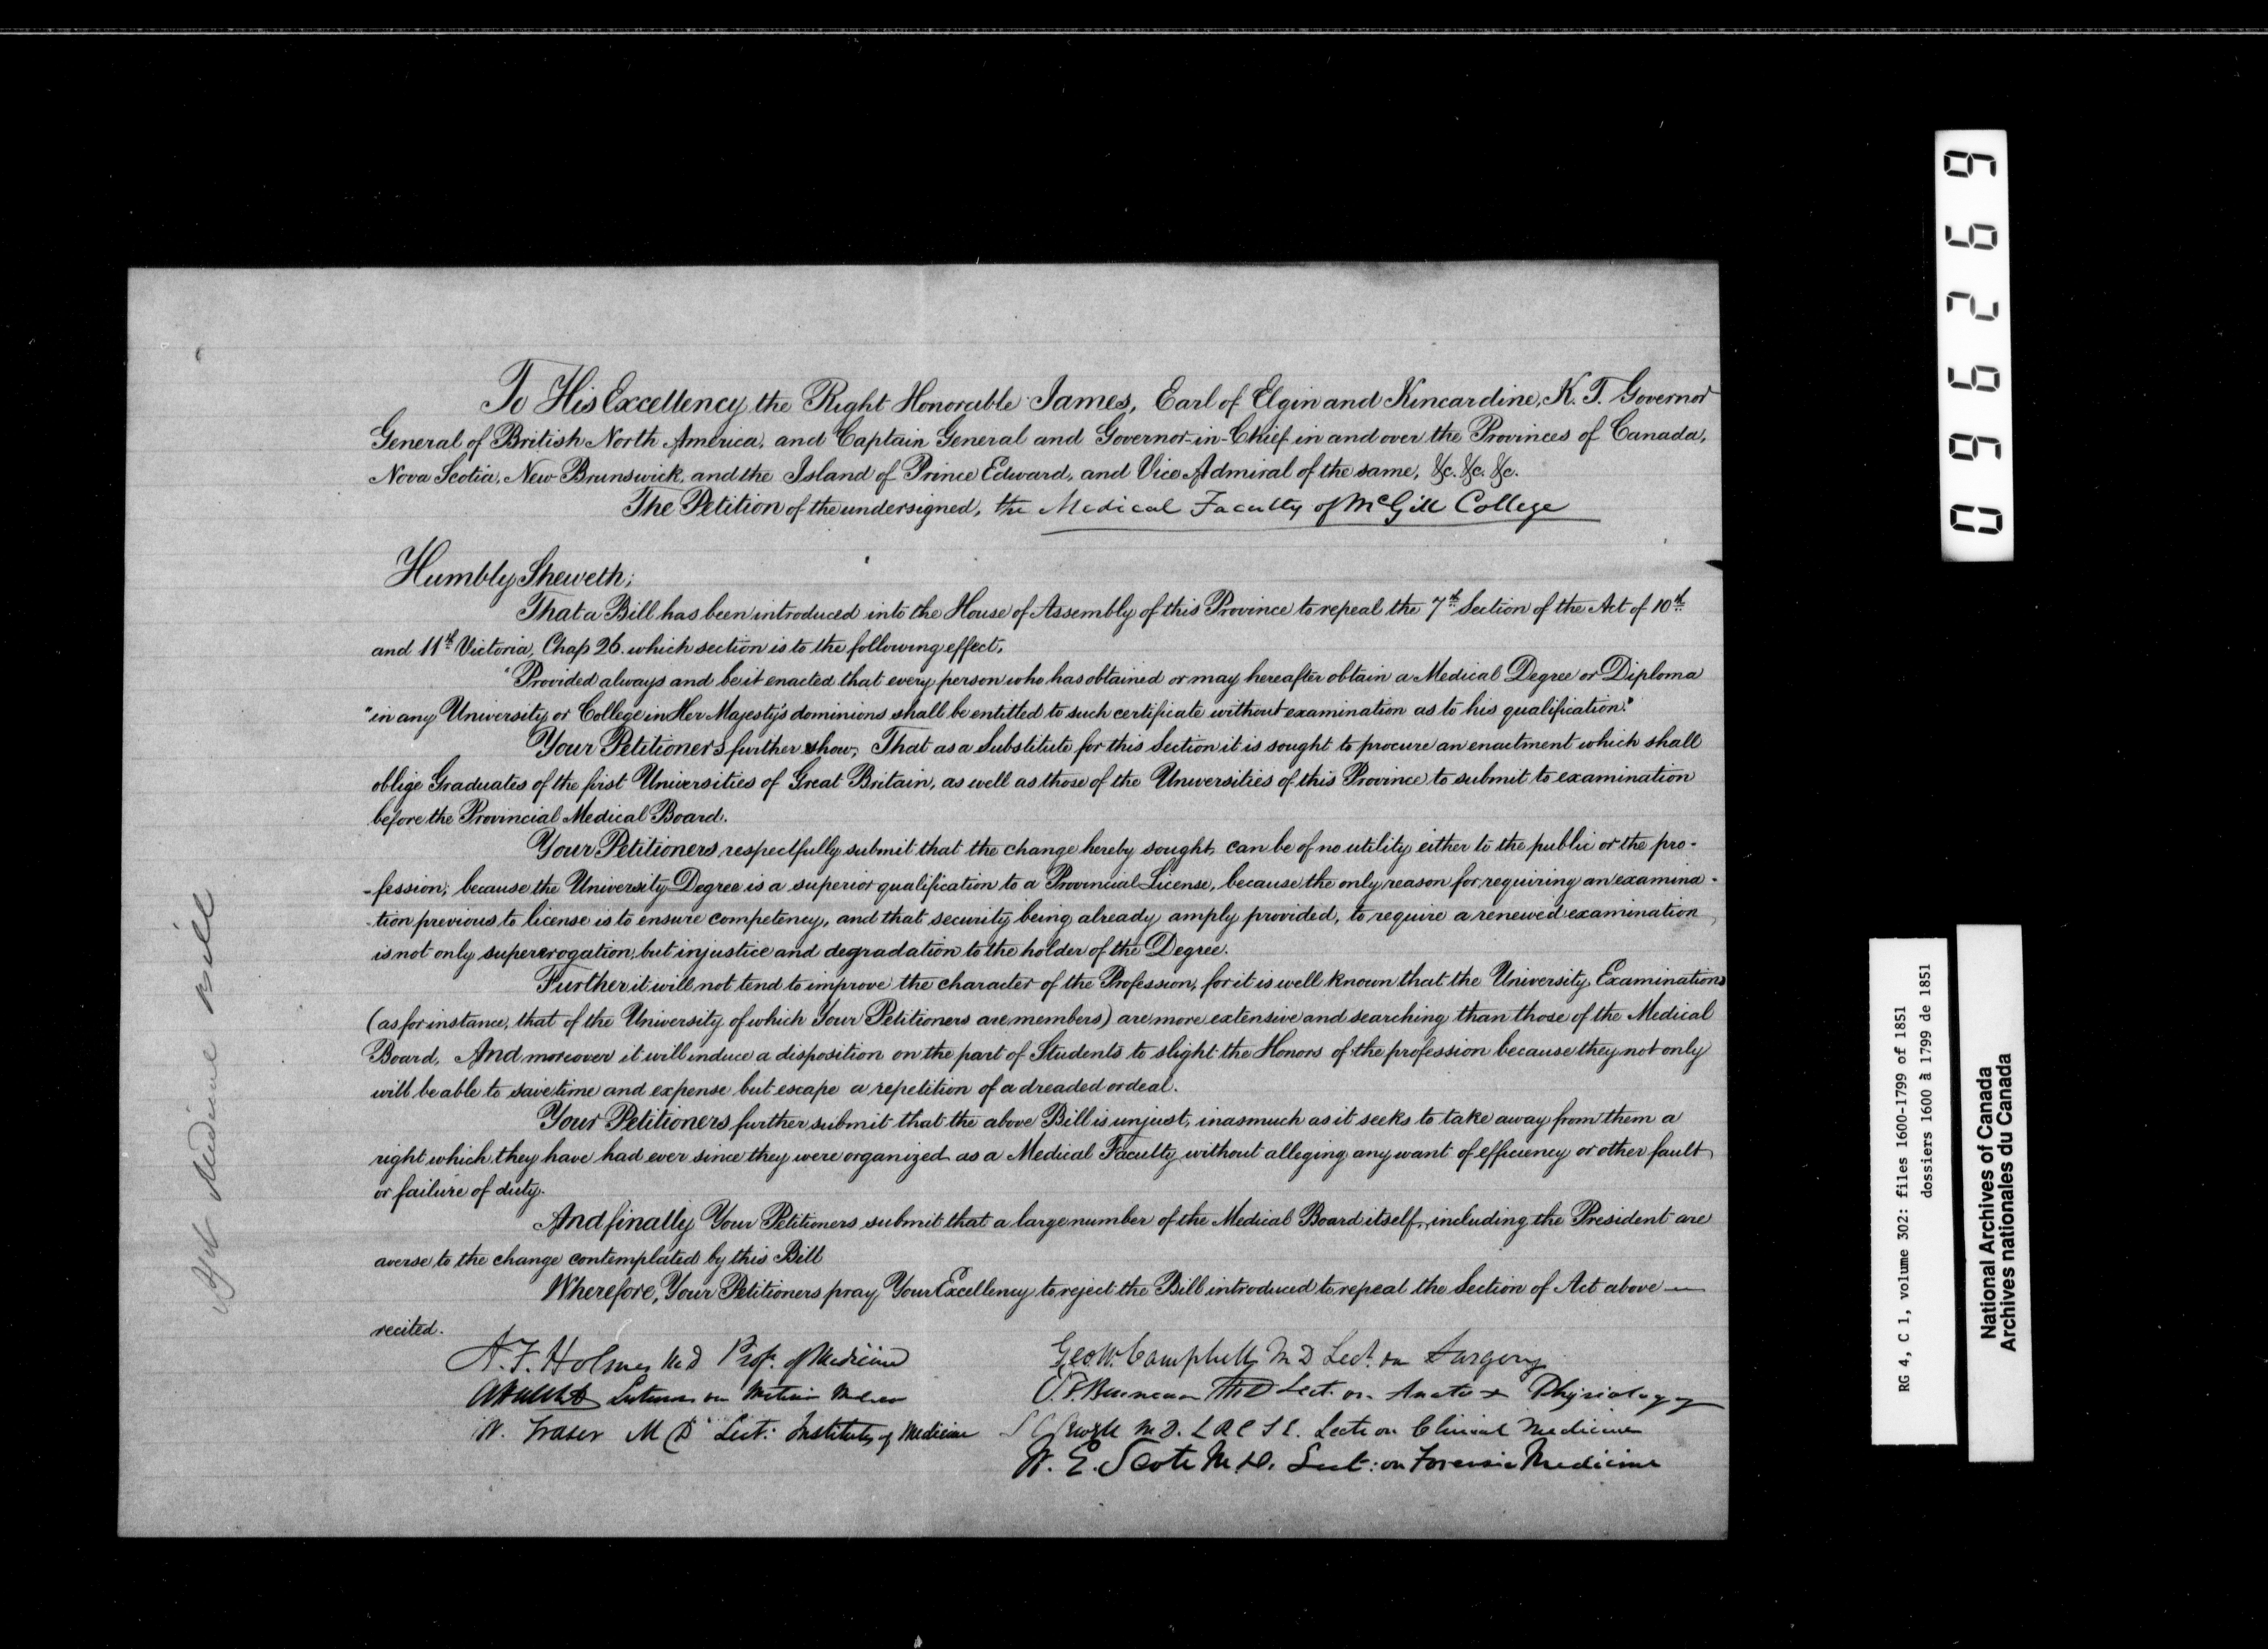 To His Excellency the Right Honorable James, Earl of Elgin and Kincardine, K. T. Governor
General of British North America, and Captain General and Governor-in-Chief in and over the Provinces of Canada,
Nova Scotia, New Brunswick, and the Island of Prince Edward, and Vice Admiral of the same, &c. &c. &c.
The Petition of the undersigned, the Medical Faculty of McGill College
Humbly Sheweth;
That a Bill has been introduced into the House of Assembly of this Province to repeal the 7th Section of the Act of 10th
and 11th Victoria, Chap 26. which section is to the following effect,
"Provided always and be it enacted that every person who has obtained or may hereafter obtain a Medical Degree or Diploma
"in any University or College in Her Majesty's dominions shall be entitled to such certificate without examination as to his qualification."
Your Petitioners further show, That as a Substitute for this Section it is sought to procure an enactment which shall
oblige Graduates of the first Universities of Great Britain, as well as those of the Universities of this Province to submit to examination
before the Provincial Medical Board.
Your Petitioners respectfully submit that the change hereby sought, can be of no utility either to the public or the pro-
-fession, because the University Degree is a superior qualification to a Provincial License, because the only reason for requiring an examina-
-tion previous to license is to ensure competency, and that security being already amply provided, to require a renewed examination,
is not only supererogation, but injustice and degradation to the holder of the Degree.
Further it will not tend to improve the character of the Profession, for it is well known that the University Examinations
(as for instance, that of the University of which Your Petitioners are members) are more extensive and searching than those of the Medical
Board, And moreover it will induce a disposition on the part of Students to slight the Honors of the profession because they not only
will be able to save time and expense but escape a repetition of a dreaded ordeal.
Your Petitioners further submit that the above Bill is unjust, inasmuch as it seeks to take away from them a
right which they have had ever since they were organized as a Medical Faculty without alleging any want of efficiency or other fault
or failure of duty.
And finally Your Petitioners submit that a large number of the Medical Board itself, including the President are
averse to the change contemplated by this Bill
Wherefore, Your Petitioners pray Your Excellency to reject the Bill introduced to repeal the Section of Act above
recited.
A. F. Holmes M D Prof. of Medicine
Lecturer on Materia Medica
W. Fraser M D Lect: Institutes of Medicine
Geo. W. Campbell M D Lect. on Surgery
M D Lect. on Anat & Physiology
M. D. L R C S E. Lect on Clinical Medicine
W. E. Scott M.D. Lect: on Forensic Medicine
Medicine Bill
096269
RG 4, C 1, volume 302: files 1600-1799 of 1851
dossiers 1600 à 1799 de 1851
National Archives of Canada
Archives nationales du Canada